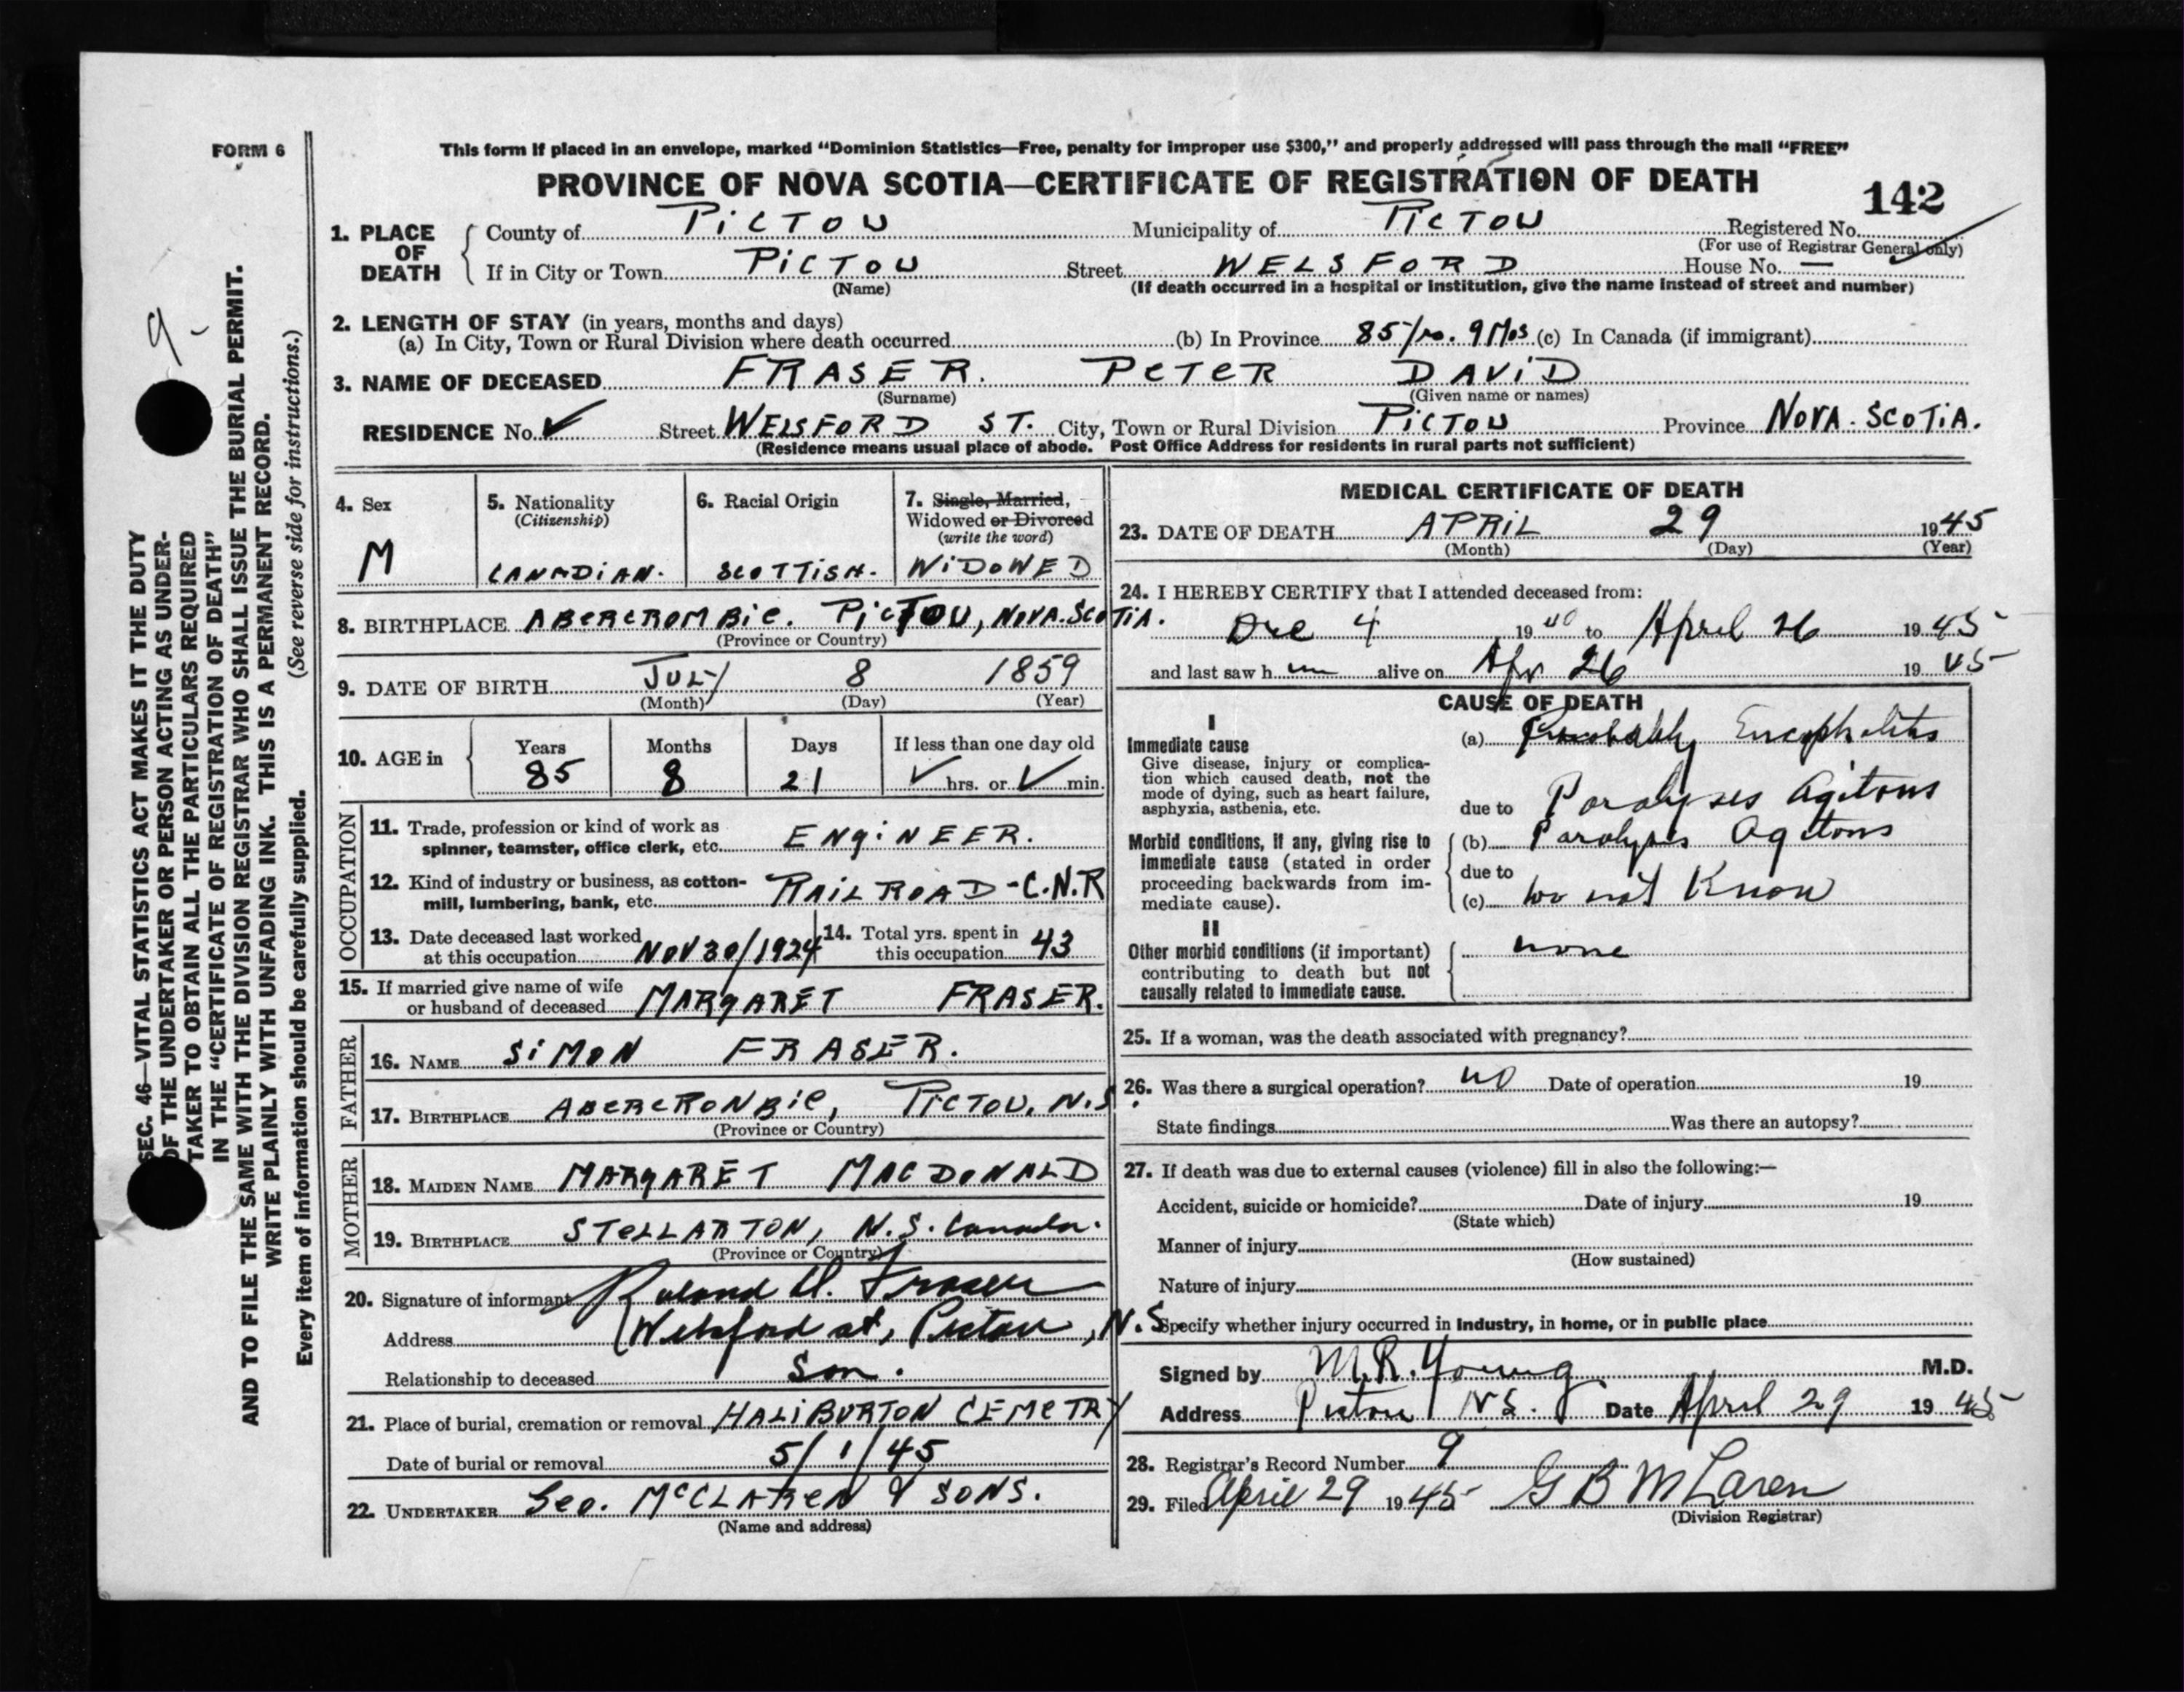 FORM 6
This form if placed in an envelope, marked "Dominion Statistics—Free, penalty for improper use $300," and properly addressed will pass through the mail "FREE"
PROVINCE OF NOVA SCOTIA—CERTIFICATE OF REGISTRATION OF DEATH
142
1. PLACE OF DEATH
County of PICTOU Municipality of PICTOU Registered No.
(For use of Registrar General only)
If in City or Town PICTOU Street WELSFORD House No. —
(Name) (If death occurred in a hospital or institution, give the name instead of street and number)
2. LENGTH OF STAY (in years, months and days)
(a) In City, Town or Rural Division where death occurred (b) In Province 85 9 Mos (c) In Canada (if immigrant)
3. NAME OF DECEASED FRASER. PETER DAVID
(Surname) (Given name or names)
RESIDENCE No. ✓ Street WELSFORD ST. City, Town or Rural Division PICTOU Province NOVA. SCOTIA.
(Residence means usual place of abode. Post Office Address for residents in rural parts not sufficient)
4. Sex
M
5. Nationality
(Citizenship)
CANADIAN.
6. Racial Origin
SCOTTISH.
7. Single, Married,
Widowed or Divorced
(write the word)
WIDOWED
8. BIRTHPLACE ABERCROMBIE. PICTOU, NOVA. SCOTIA.
(Province or Country)
9. DATE OF BIRTH JULY 8 1859
(Month) (Day) (Year)
10. AGE in
Years Months Days If less than one day old
85 8 21 ✓ hrs. or ✓ min.
OCCUPATION
11. Trade, profession or kind of work as
spinner, teamster, office clerk, etc. ENGINEER.
12. Kind of industry or business, as cotton-
mill, lumbering, bank, etc. RAILROAD - C.N.R
13. Date deceased last worked
at this occupation NOV 30/1924
14. Total yrs. spent in
this occupation 43
15. If married give name of wife
or husband of deceased MARGARET FRASER.
FATHER
16. NAME SIMON FRASER.
17. BIRTHPLACE ABERCRONBIE, PICTOU, N.S.
(Province or Country)
MOTHER
18. MAIDEN NAME MARGARET MACDONALD
19. BIRTHPLACE STELLARTON, N.S. Canada.
(Province or Country)
20. Signature of informant Roland H. Fraser
Address Welsford st, Pictou, N.S.
Relationship to deceased Son.
21. Place of burial, cremation or removal HALIBURTON CEMETRY
Date of burial or removal 5/1/45
22. UNDERTAKER Geo. McCLAREN & SONS.
(Name and address)
MEDICAL CERTIFICATE OF DEATH
23. DATE OF DEATH APRIL 29 1945
(Month) (Day) (Year)
24. I HEREBY CERTIFY that I attended deceased from:
Dec 4 1940 to April 26 1945
and last saw h im alive on Apr 26 1945
CAUSE OF DEATH
I
Immediate cause
Give disease, injury or complica-
tion which caused death, not the
mode of dying, such as heart failure,
asphyxia, asthenia, etc.
(a) Probably Encephalitis
due to Paralyses Agitans
Morbid conditions, if any, giving rise to
immediate cause (stated in order
proceeding backwards from im-
mediate cause).
(b) Paralysis Agitans
due to
(c) Do not Know
II
Other morbid conditions (if important)
contributing to death but not
causally related to immediate cause.
none
25. If a woman, was the death associated with pregnancy?
26. Was there a surgical operation? no Date of operation 19
State findings Was there an autopsy?
27. If death was due to external causes (violence) fill in also the following:—
Accident, suicide or homicide? Date of injury 19
(State which)
Manner of injury
(How sustained)
Nature of injury
Specify whether injury occurred in Industry, in home, or in public place
Signed by M.R. Young M.D.
Address Pictou NS. Date April 29 1945
28. Registrar's Record Number 9
29. Filed April 29 1945 G B McLaren
(Division Registrar)
9-
SEC. 46—VITAL STATISTICS ACT MAKES IT THE DUTY
OF THE UNDERTAKER OR PERSON ACTING AS UNDER-
TAKER TO OBTAIN ALL THE PARTICULARS REQUIRED
IN THE "CERTIFICATE OF REGISTRATION OF DEATH"
AND TO FILE THE SAME WITH THE DIVISION REGISTRAR WHO SHALL ISSUE THE BURIAL PERMIT.
WRITE PLAINLY WITH UNFADING INK. THIS IS A PERMANENT RECORD.
(See reverse side for instructions.)
Every item of information should be carefully supplied.